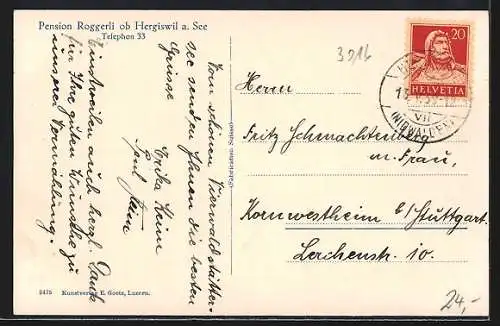 Pension Roggerli ob Hergiswil a. See
Telephon 33
3216
20
HELVETIA
VII
(NIDWALDEN)
Vom schönen Vierwaldstätter-
see senden Ihnen die besten
Grüsse
Erika Keim
Paul Keim
Einstweilen auch herzl. Dank
für Ihre guten Wünsche zu
unserer Vermählung.
Herrn
Fritz Schmachtenberg
m. Frau,
Kornwestheim b/Stuttgart.
Lerchenstr. 10.
Kunstverlag E. Goetz, Luzern.
24,-